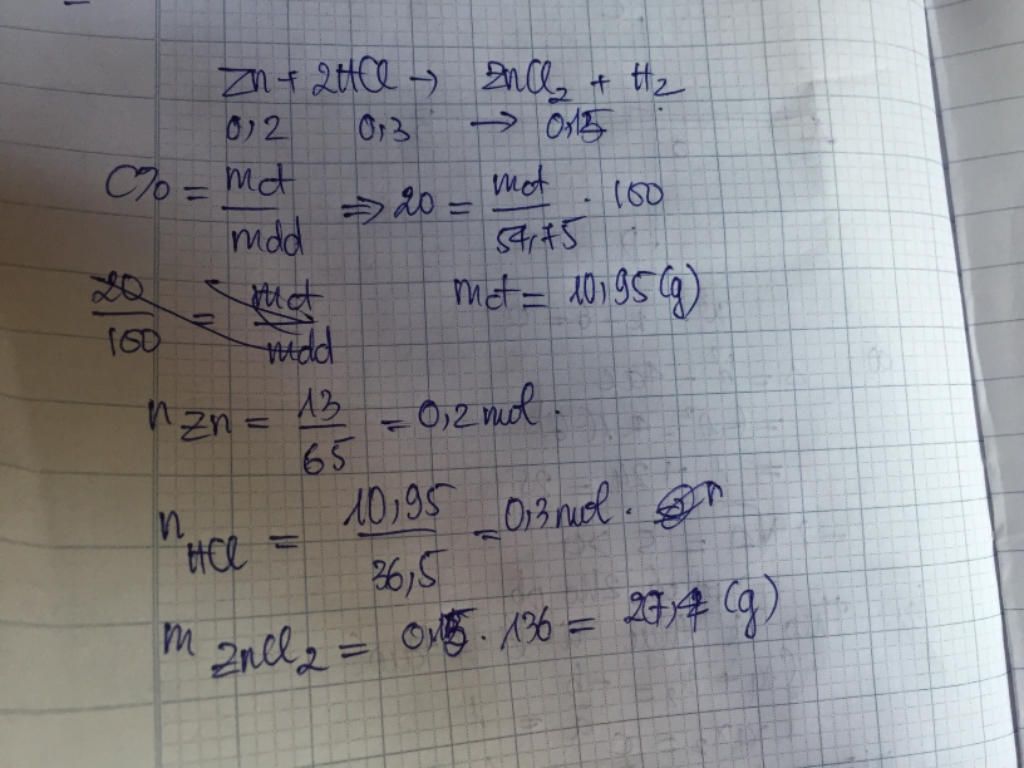 Zn + 2HCl → ZnCl2 + H2
0,2 0,3 → 0,15
C% = mct / mdd ⇒ 20 = mct / 54,75 . 100
20 / 100 = mct / mdd mct = 10,95 (g)
n Zn = 13 / 65 = 0,2 mol .
n HCl = 10,95 / 36,5 = 0,3 mol .
m ZnCl2 = 0,15 . 136 = (g)